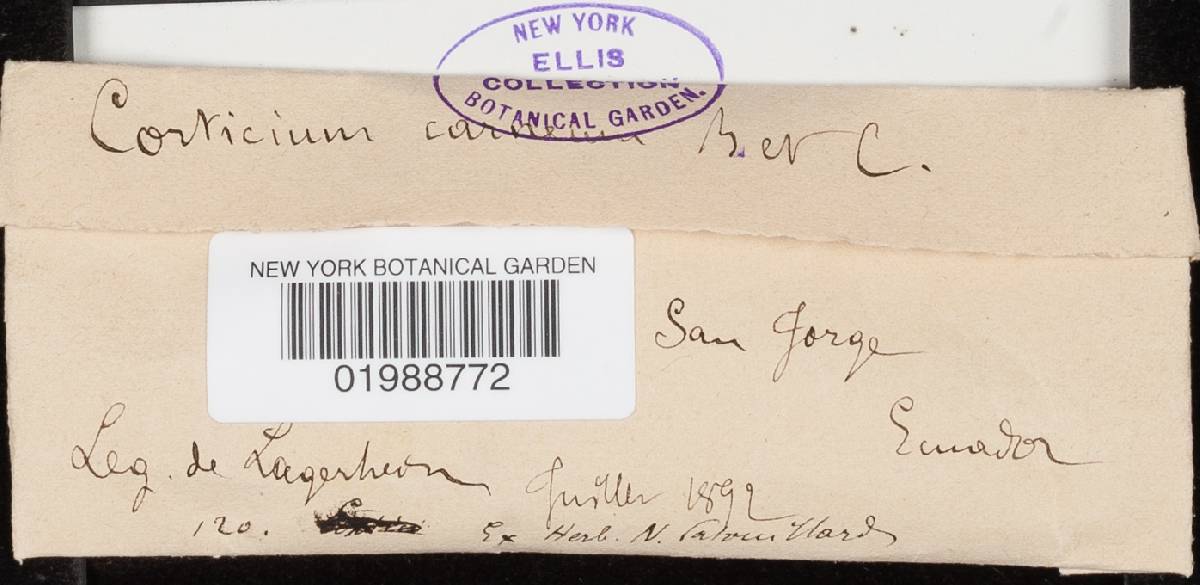 NEW YORK
ELLIS
COLLECTION
BOTANICAL GARDEN.
Corticium carneum B. et C.
NEW YORK BOTANICAL GARDEN
01988772
San Jorge
Ecuador
Leg. de Lagerheim Juillet 1892
120. Ex Herb. N. Patouillard